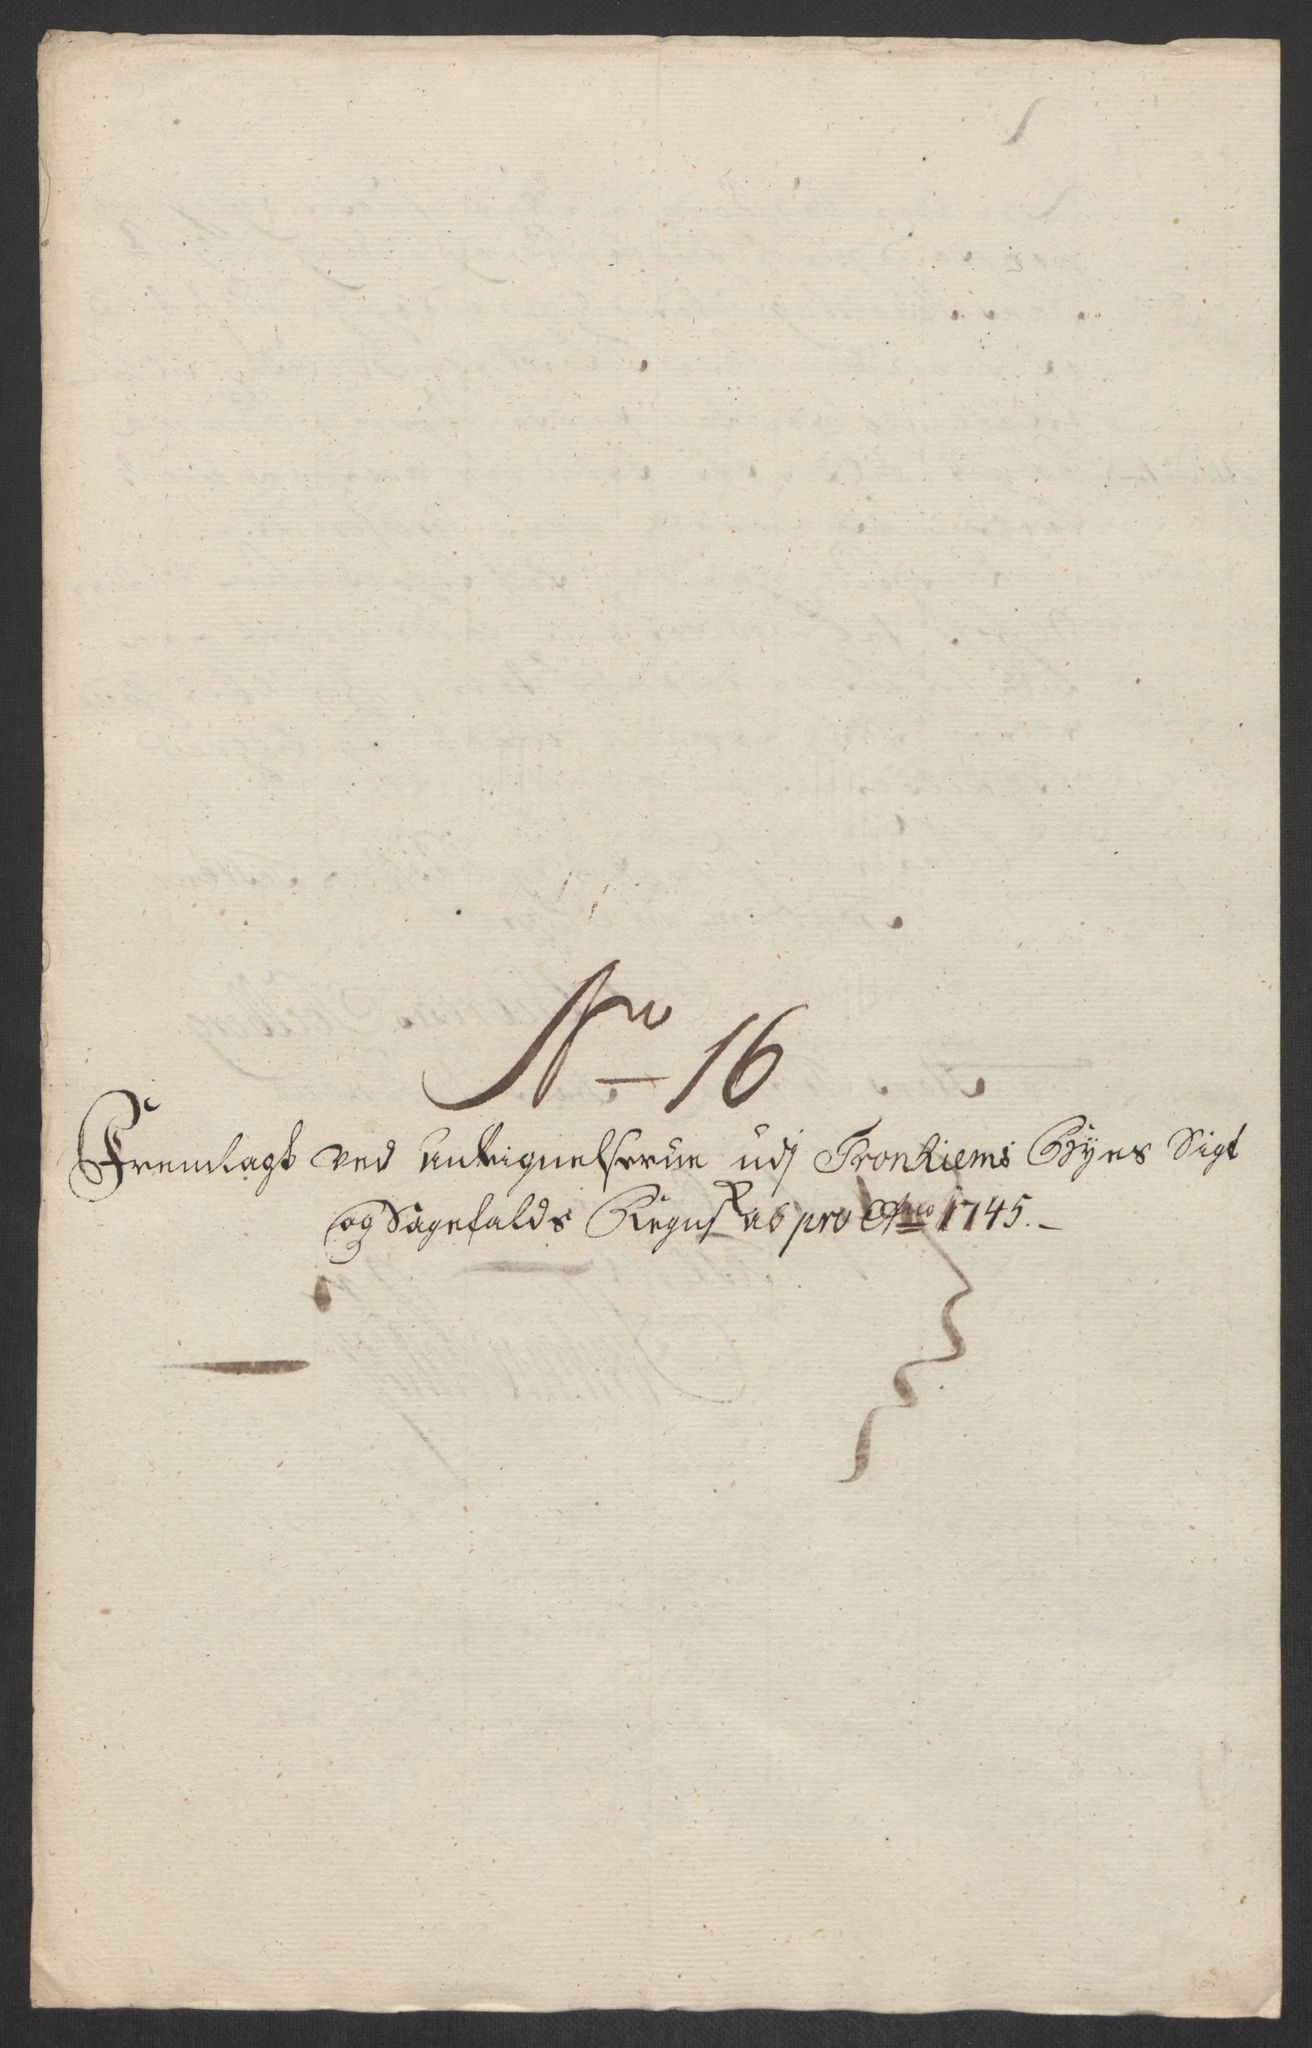 No 16
Fremlagt ved Antegnelserne udj Tronhiems Byes Sigt
og Sagefalds Regnskab pro Anno 1745.